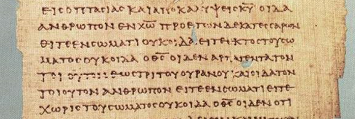 ΕΙϹΟΠΤΑϹΙΑϹΚΑΙΑΠΟΚΑΛΥΨΕΙϹΚ̅Υ̅ΟΙΔΑ
ΑΝΘΡΩΠΟΝΕΝΧ̅Ω̅ΠΡΟΕΤΩΝΔΕΚΑΤΕϹϹΑΡΩΝ
ΕΙΤΕΕΝϹΩΜΑΤΙΟΥΚΟΙΔΑΕΙΤΕΕΚΤΟϹΤΟΥϹΩ
ΜΑΤΟϹΟΥΚΟΙΔΑΟΘ̅Ϲ̅ΟΙΔΕΝΑΡΠΑΓΕΝΤΑΤΟΝ
ΤΟΙΟΥΤΟΝΕΩϹΤΡΙΤΟΥΟΥΡΑΝΟΥΚΑΙΟΙΔΑΤΟΝ
ΤΟΙΟΥΤΟΝΑΝΘΡΩΠΟΝΕΙΤΕΕΝϹΩΜΑΤΙΕΙΤΕ
ΧΩΡΙϹΤΟΥϹΩΜΑΤΟϹΟΥΚΟΙΔΑΟΘ̅Ϲ̅ΟΙΔΕΝΟΤΙ